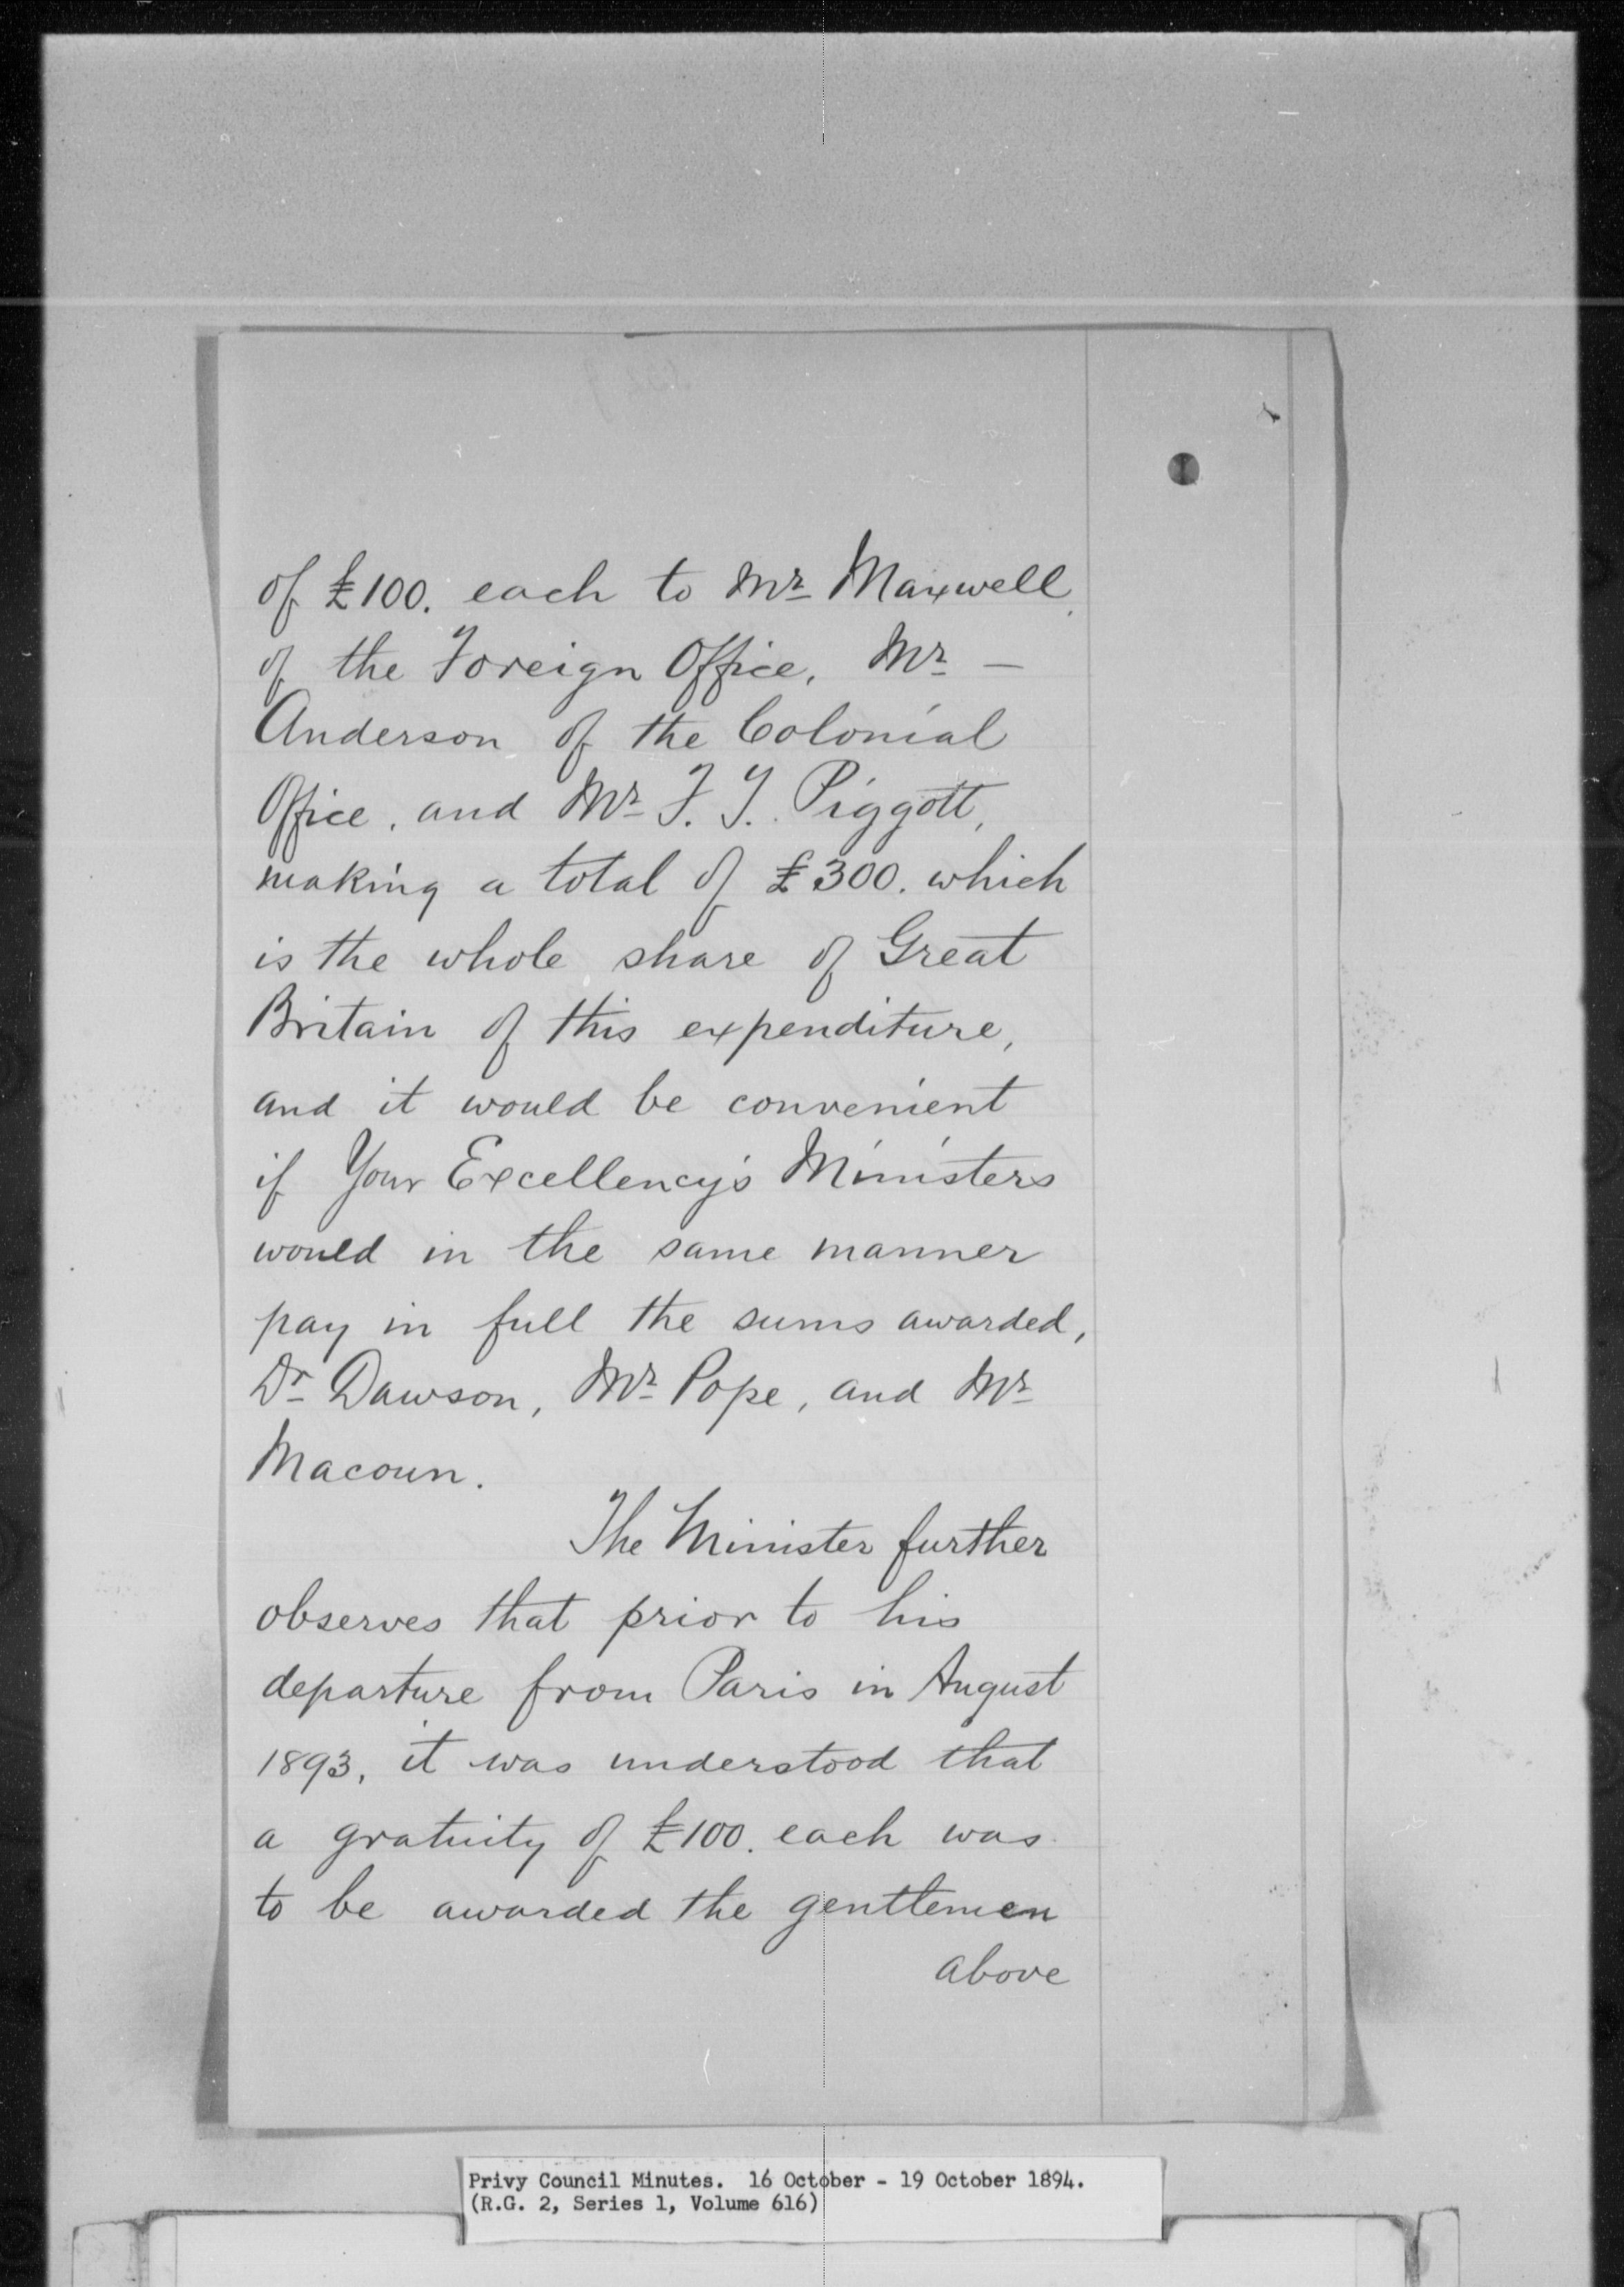 of £100. each to Mr Maxwell
of the Foreign Office, Mr —
Anderson of the Colonial
Office, and Mr F. T. Piggott,
making a total of £300. which
is the whole share of Great
Britain of this expenditure,
and it would be convenient
if Your Excellency's Ministers
would in the same manner
pay in full the sums awarded,
Dr Dawson, Mr Pope, and Mr
Macoun.
The Minister further
observes that prior to his
departure from Paris in August
1893, it was understood that
a gratuity of £100. each was
to be awarded the gentlemen
above
Privy Council Minutes. 16 October - 19 October 1894.
(R.G. 2, Series 1, Volume 616)